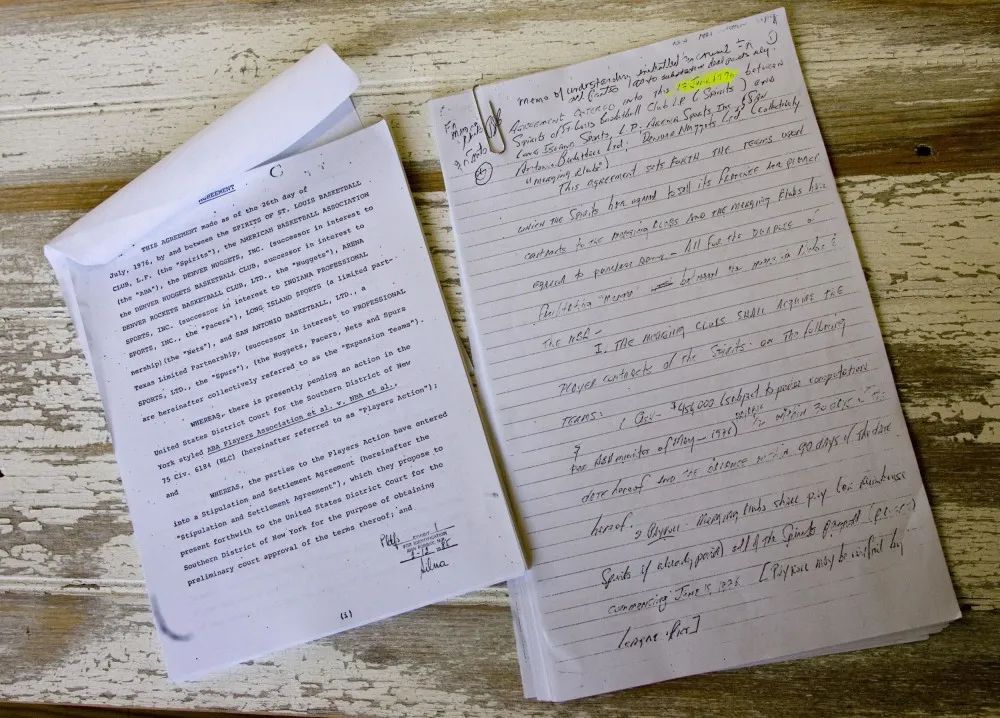 AGREEMENT
THIS AGREEMENT made as of the 26th day of
July, 1976, by and between the SPIRITS OF ST. LOUIS BASKETBALL
CLUB, L.P. (the "Spirits"), the AMERICAN BASKETBALL ASSOCIATION
(the "ABA"), the DENVER NUGGETS, INC. (successor in interest to
the DENVER NUGGETS BASKETBALL CLUB, successor in interest to
DENVER ROCKETS BASKETBALL CLUB, LTD., the "Nuggets"), ARENA
SPORTS, INC. (successor in interest to INDIANA PROFESSIONAL
SPORTS, INC., the "Pacers"), LONG ISLAND SPORTS (a limited part-
nership)(the "Nets"), and SAN ANTONIO BASKETBALL, LTD., a
Texas Limited Partnership, (successor in interest to PROFESSIONAL
SPORTS, LTD., the "Spurs"), (the Nuggets, Pacers, Nets and Spurs
are hereinafter collectively referred to as the "Expansion Teams").
WHEREAS, there is presently pending an action in the
United States District Court for the Southern District of New
York styled ABA Players Association et al. v. NBA et al.,
75 Civ. 6184 (RLC) (hereinafter referred to as "Players Action");
and
WHEREAS, the parties to the Players Action have entered
into a Stipulation and Settlement Agreement (hereinafter the
"Stipulation and Settlement Agreement"), which they propose to
present forthwith to the United States District Court for the
Southern District of New York for the purpose of obtaining
preliminary court approval of the terms thereof; and
FOR IDENTIFICATION
Silva
(i)
memo of understanding initialled
AGREEMENT ENTERED INTO this June 1976 between
Spirits of St. Louis Basketball Club L.P. (Spirits) and
Long Island Sports, L.P., Arena Sports, Inc.,
Antonio Basketball Ltd., Denver Nuggets Ltd (collectively
"merging clubs")
This Agreement sets forth the terms
which the Spirits have agreed to sell its
contracts to the merging clubs and the merging clubs have
agreed to purchase same - all for the purpose of
between the merging clubs &
the NBA -
I. The merging clubs shall acquire the
Player contracts of the Spirits on the following
Terms:
$456,000 (subject to
May - 1976) within 30 days
date hereof and the balance within 90 days of the date
hereof.
Payroll - merging clubs shall pay
Spirits if already paid) all of the Spirits payroll
commencing June 1976. [Payroll may be verified by